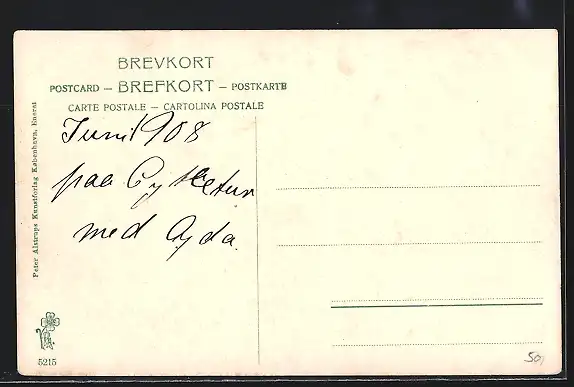 BREVKORT
POSTCARD — BREFKORT — POSTKARTE
CARTE POSTALE — CARTOLINA POSTALE
Juni 1908
paa Cykletur
med Ayda
Peter Alstrups Kunstforlag København, Eneret
5215
50,